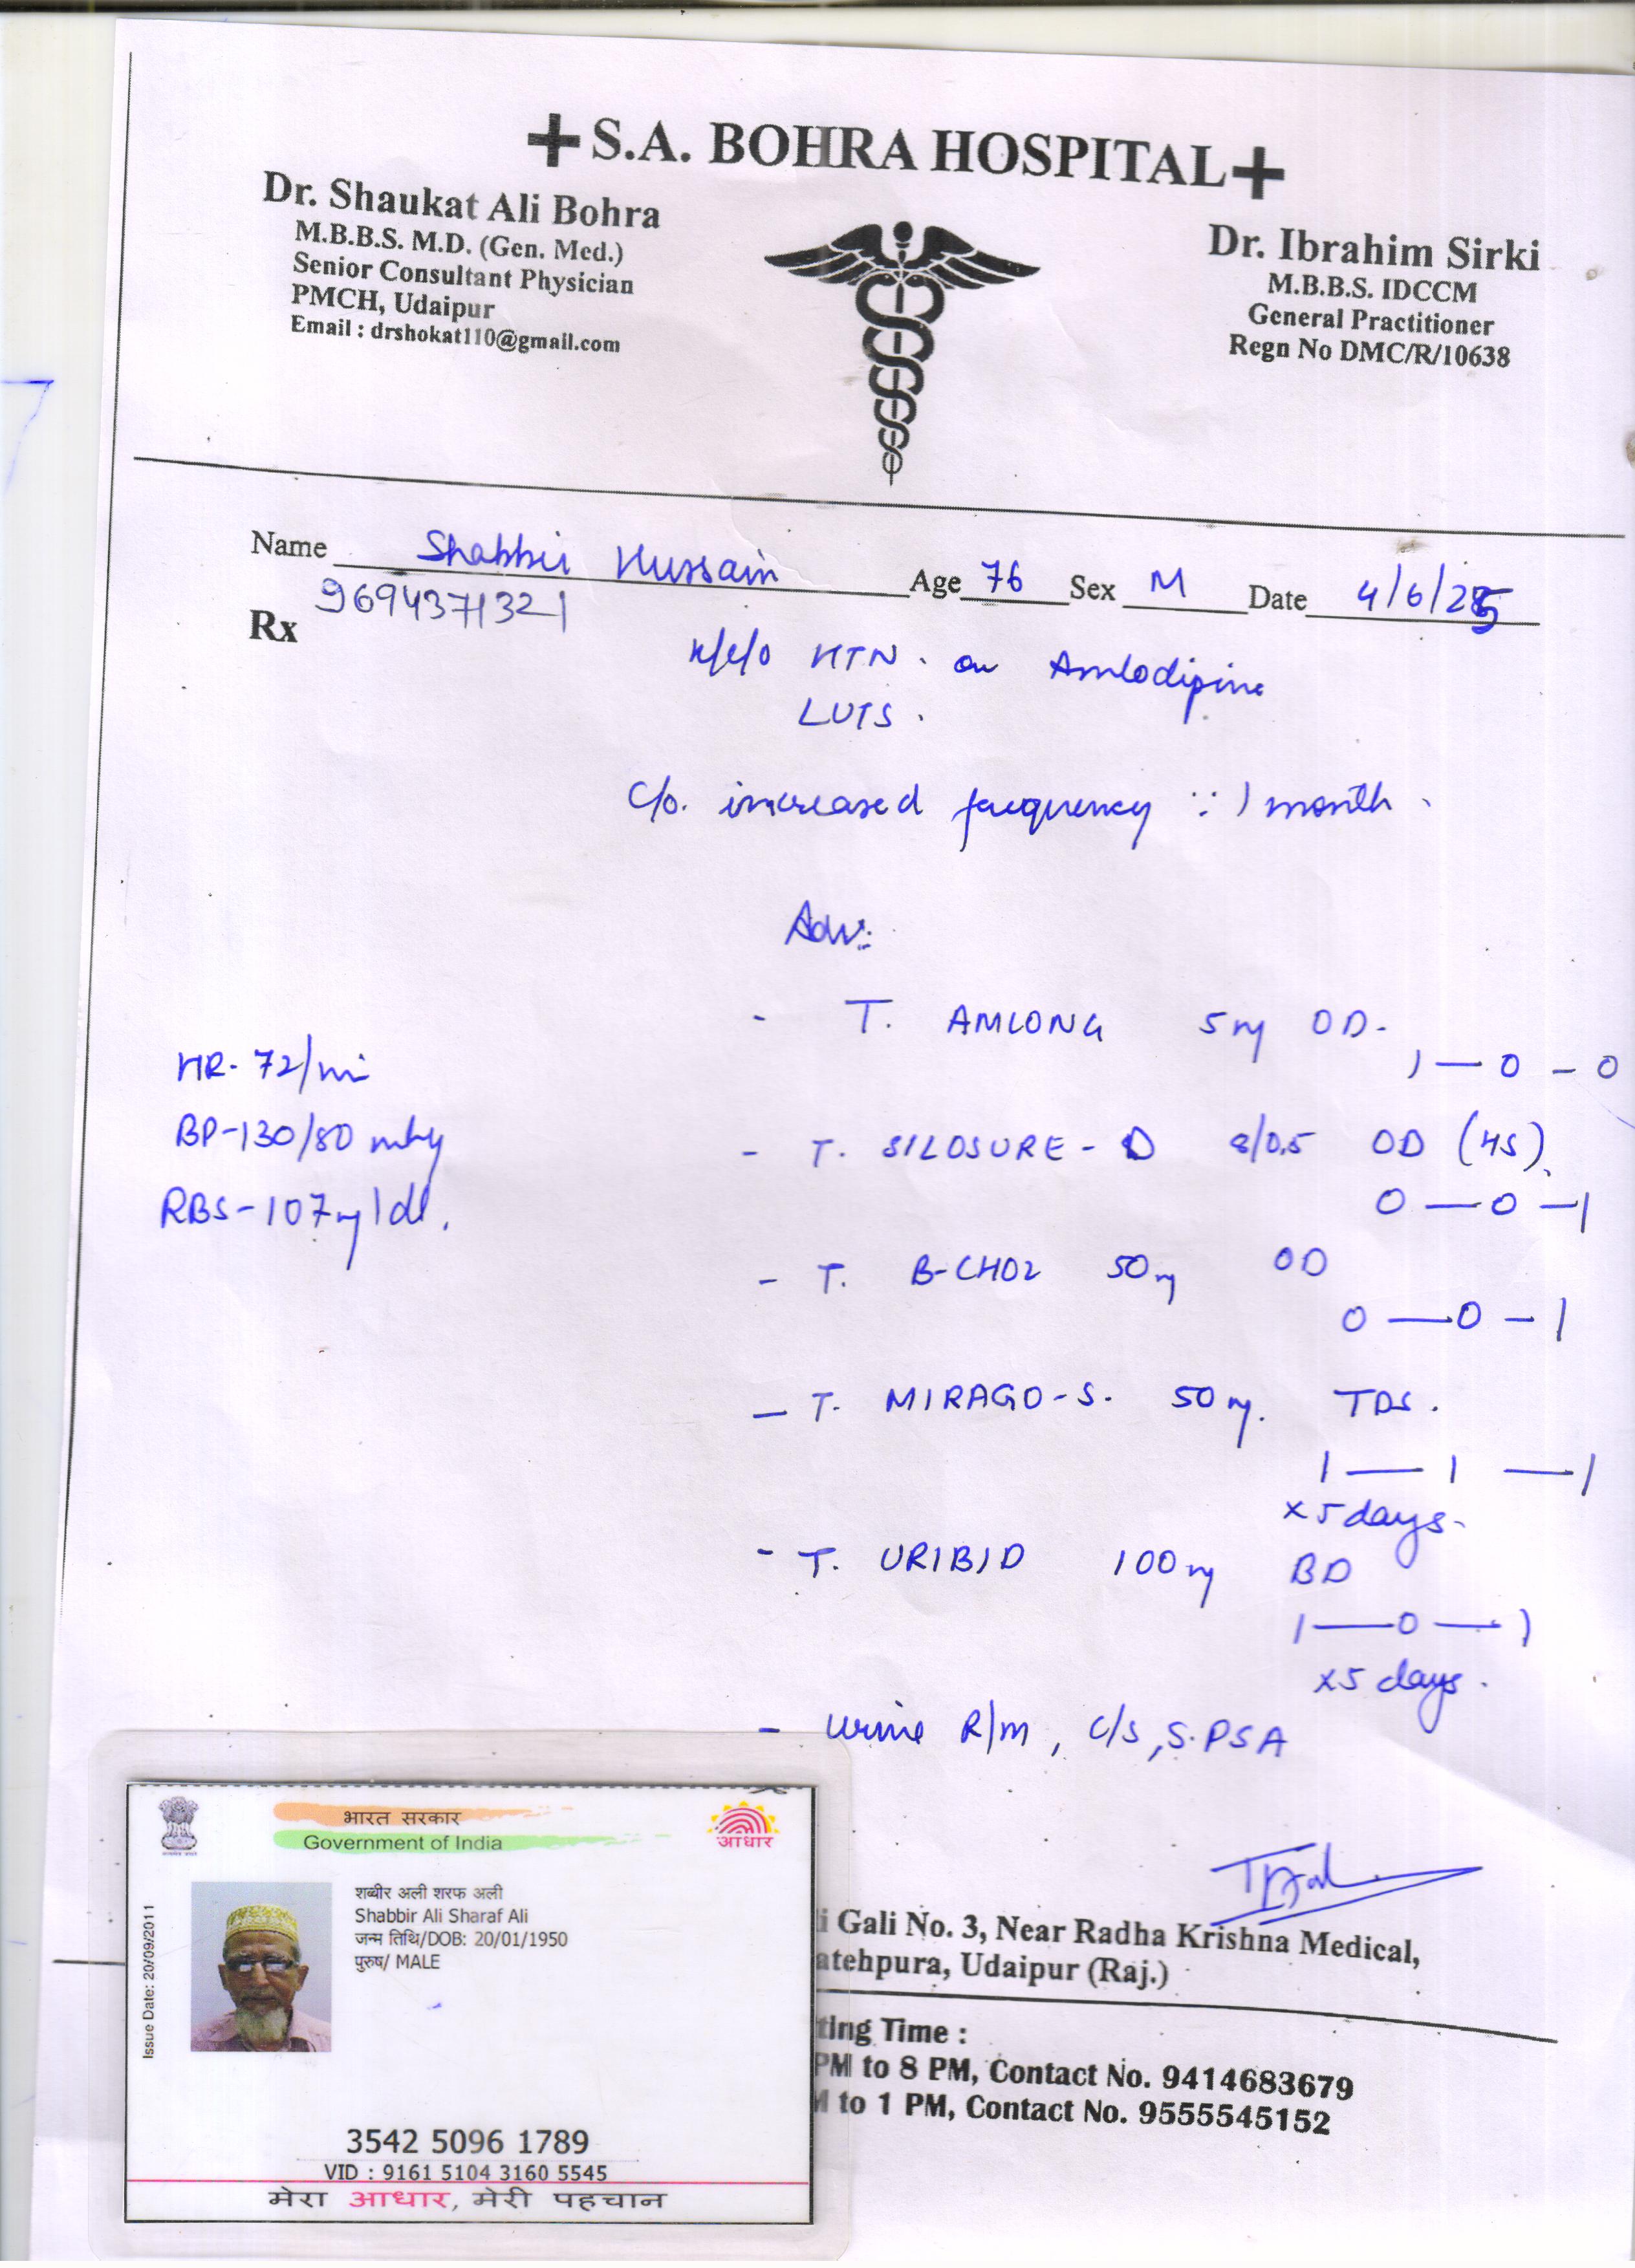 S.A. BOHRA HOSPITAL
Dr. Shaukat Ali Bohra
M.B.B.S. M.D. (Gen. Med.)
Senior Consultant Physician
PMCH, Udaipur
Email : drshokat110@gmail.com
Dr. Ibrahim Sirki
M.B.B.S. IDCCM
General Practitioner
Regn No DMC/R/10638
Name Shabbir Hussain Age 76 Sex M Date 4/6/25
9694371321
Rx
K/C/O HTN. on Amlodipine
LUTS.
C/o. increased frequency ∵ 1 month.
Adv:
- T. AMLONG 5mg OD.
1 — 0 - 0
HR- 72/mi
BP-130/80 mmHg
RBS-107mg/dl.
- T. SILOSURE - D 8/0.5 OD (HS).
0 — 0 - 1
- T. B-CHO2 50mg OD
0 — 0 - 1
- T. MIRAGO-S. 50mg. TDS.
1 — 1 — 1
x5days.
- T. URIBID 100mg BD
1 — 0 — 1
x5 days.
- Urine R/m, C/s, S.PSA
i Gali No. 3, Near Radha Krishna Medical,
atehpura, Udaipur (Raj.)
ting Time :
PM to 8 PM, Contact No. 9414683679
M to 1 PM, Contact No. 9555545152
भारत सरकार
Government of India
आधार
Issue Date: 20/09/2011
शब्बीर अली शरफ अली
Shabbir Ali Sharaf Ali
जन्म तिथि/DOB: 20/01/1950
पुरुष/ MALE
3542 5096 1789
VID : 9161 5104 3160 5545
मेरा आधार, मेरी पहचान